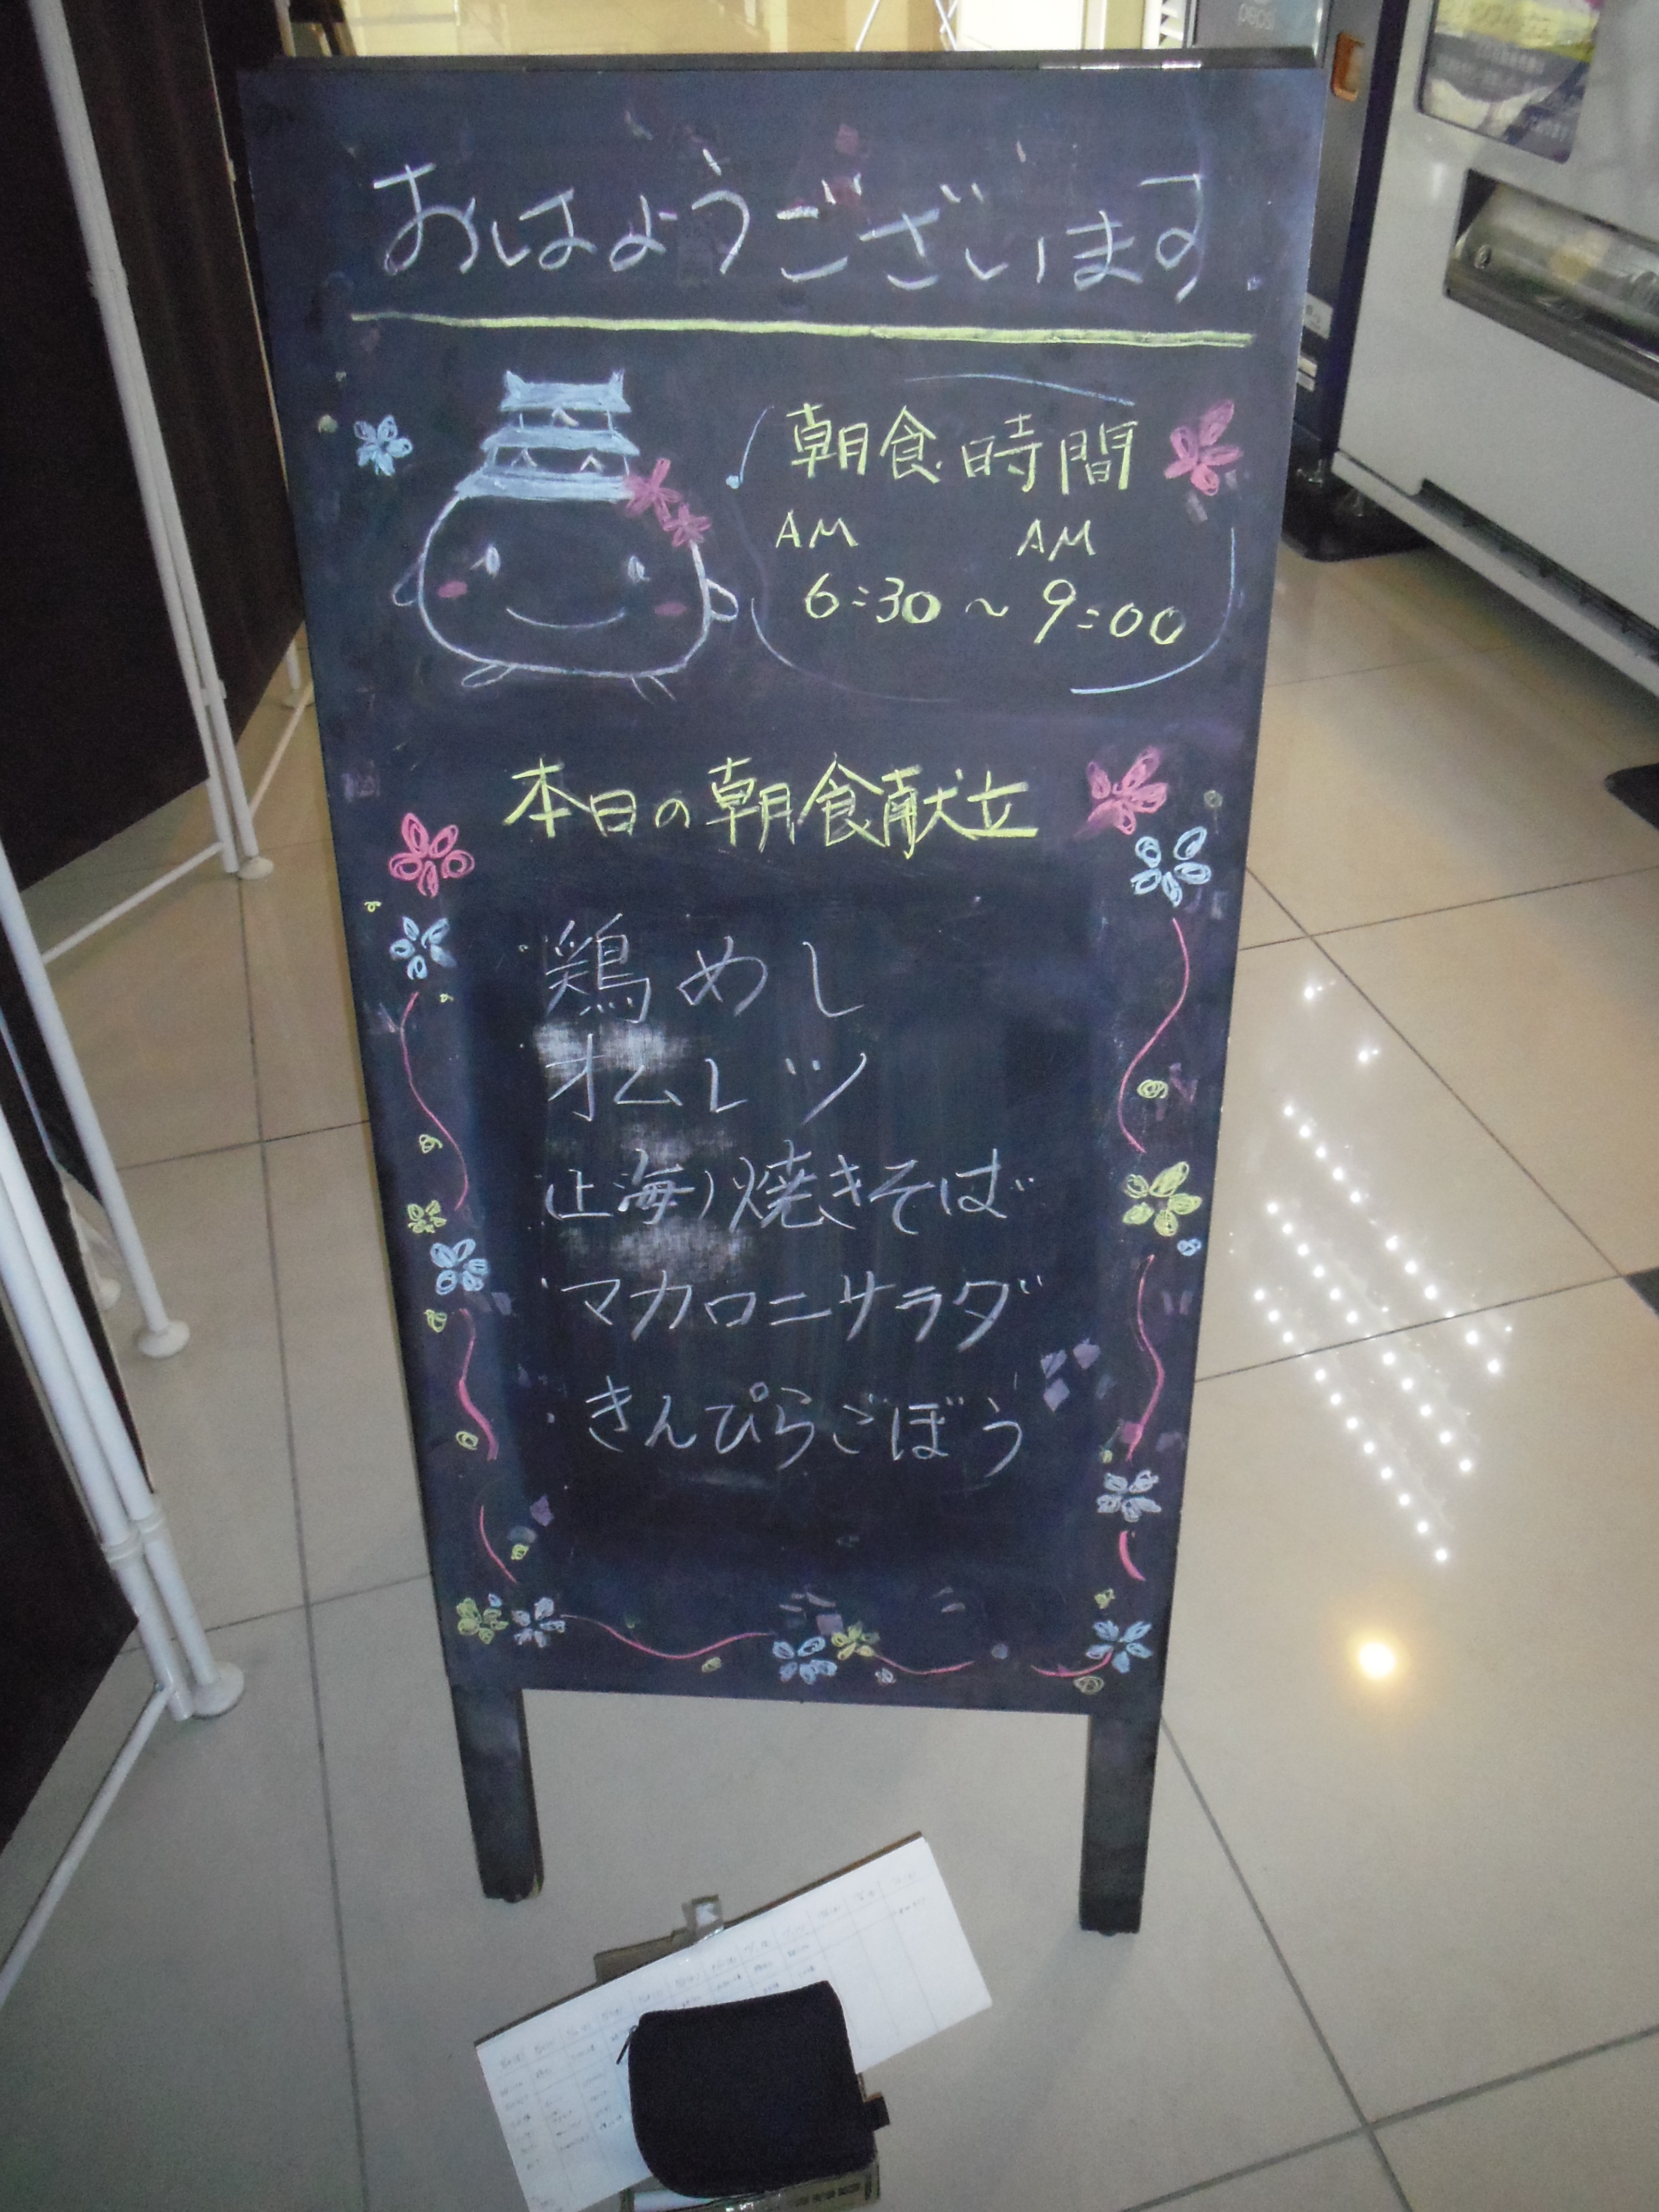 おはようございます.
朝食時間
AM AM
6:30 ~ 9:00
本日の朝食献立
・鶏めし
・オムレツ
・上海焼きそば
・マカロニサラダ
・きんぴらごぼう
pepsi